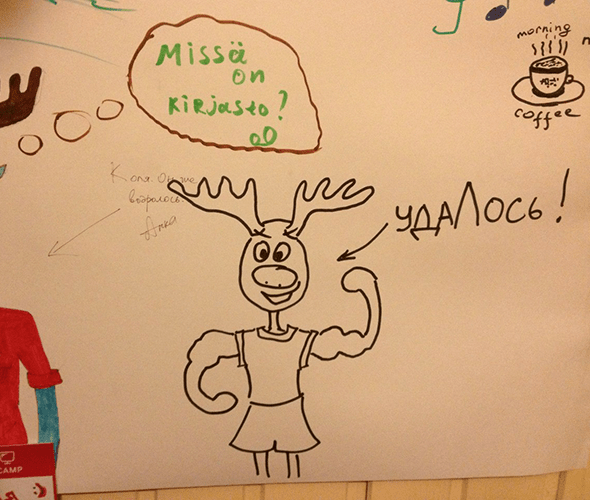 Missä
on
Kirjasto?
morning
coffee
Коля. Он же
Анка
УДАЛОСЬ!
CAMP